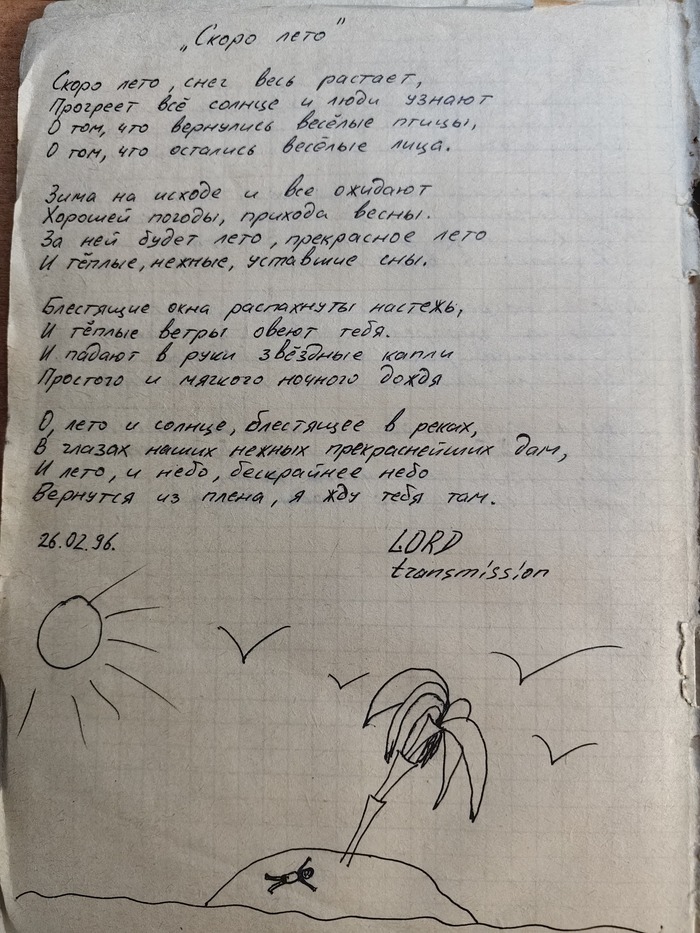 „Скоро лето"
Скоро лето, снег весь растает,
Прогреет всё солнце и люди узнают
О том, что вернулись весёлые птицы,
О том, что остались весёлые лица.
Зима на исходе и все ожидают
Хорошей погоды, прихода весны.
За ней будет лето, прекрасное лето
И тёплые, нежные, уставшие сны.
Блестящие окна распахнуты настежь,
И тёплые ветры овеют тебя.
И падают в руки звёздные капли
Простого и мягкого ночного дождя
О, лето и солнце, блестящее в реках,
В глазах наших нежных прекраснейших дам,
И лето, и небо, бескрайнее небо
Вернутся из плена, я жду тебя там.
26.02.96.
LORD
transmission